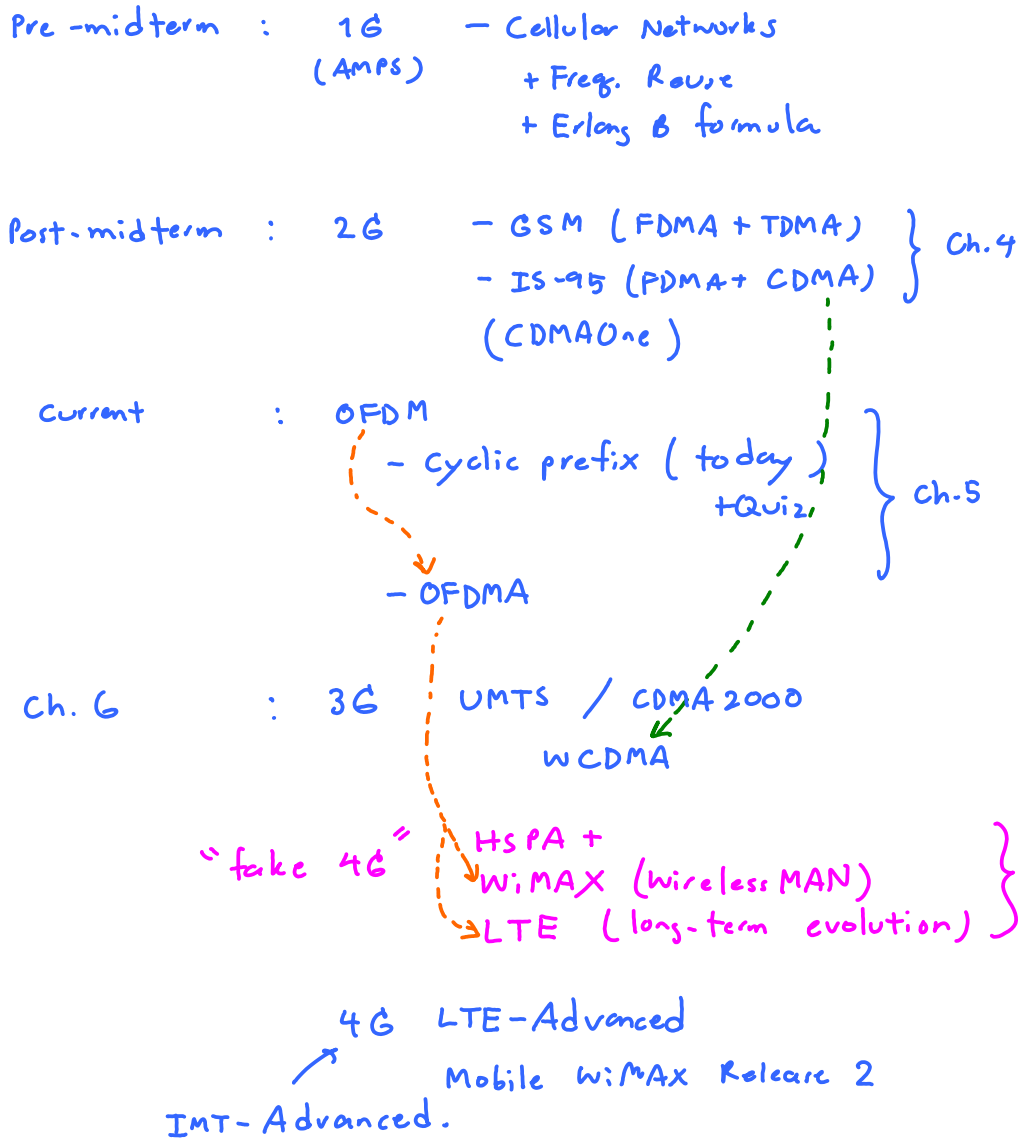 Pre-midterm : 1G - Cellular Networks
(AMPS)
+ Freq. Reuse
+ Erlang B formula
Post-midterm : 2G - GSM (FDMA + TDMA)
Ch.4
- IS-95 (FDMA + CDMA)
(CDMAOne)
Current : OFDM
- Cyclic prefix (today)
+Quiz
Ch.5
- OFDMA
Ch. 6 : 3G UMTS / CDMA 2000
WCDMA
"fake 4G" HSPA +
WiMAX (WirelessMAN)
LTE (long-term evolution)
4G LTE-Advanced
Mobile WiMAX Release 2
IMT-Advanced.